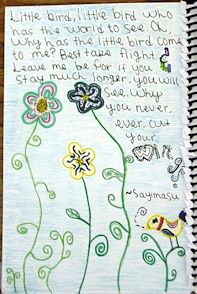 Little bird, little bird who
has the world to see. O,
Why has the little bird come
to me? Best take flight &
Leave me be for if you
stay much longer, you will
see. Why
you never,
ever, cut
your
wings.
~Saymasu